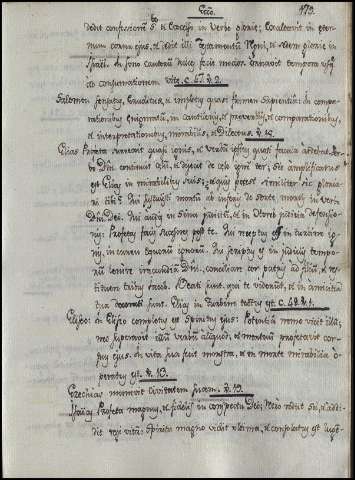 Eccli.
173.
dedit confessionem S. et Excelso in verbo gloriæ; exaltavit in eter-
num cornu ejus, et dedit illi Testamentum Regni, et sedem gloriæ in
Israel. In sono cantorum dulces fecit modos; ornavit tempora usq
ad consumationem vite. c. 47. v. 2.
Salomon scripsit, eruditus, et impletus quasi flumen sapientia: in compa-
rationibus enigmatum, in cantilenis, et proverbiis, et comparationibus,
et interpretationibus, mirabilis, et Dilectus. v. 14.
Elias Profeta surrexit quasi ignis, et verbum ipsius quasi facula ardebat. Ver-
bo Dni. continuit celum, et dejecit de celo ignem ter; Sic amplificatus
est Elias in mirabilibus suis; et quis potest similiter sic gloria-
ri tibi? Qui sustulisti mortuum ab inferis de sorte mortis in verbo
Dni. Dei. Qui audis in Sina judicium, et in Oreb judicia defensio-
nis: Profetas facis successores post te. Qui receptus es in turbine ig-
nis, in curru equorum igneorum. Qui scriptus es in judiciis tempo-
rum lenire iracundiam Dni., conciliare cor patris ad filium, et res-
tituere tribus Jacob. Beati sunt, qui te viderunt, et in amicitia
tua decorati sunt. Elias in turbine tectus est. c. 48. v. 1.
Eliseo: in Eliseo completus est Spiritus ejus: Potentia nemo vicit illum;
nec superavit illum verbum aliquod, et mortuum profetavit cor-
pus ejus. in vita sua fecit monstra, et in morte mirabilia o-
peratus est. v. 13.
Ezechias munivit Civitatem suam. v. 19.
Isaias Profeta magnus, et fidelis in conspectu Dei; retro rediit Sol, et addi-
dit regi vitam: Spiritu magno vidit ultima, et consolatus est luge-